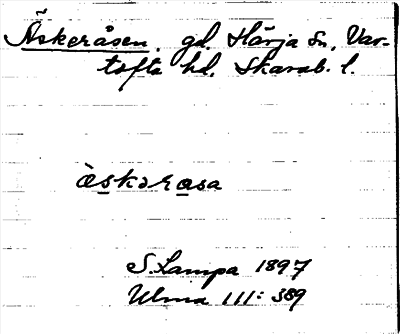 Äskeråsen, gd, Härja sn, Var-
tofta hd, Skarab. l.
àskərasa
S. Lampa 1897
Ulma 111: 389